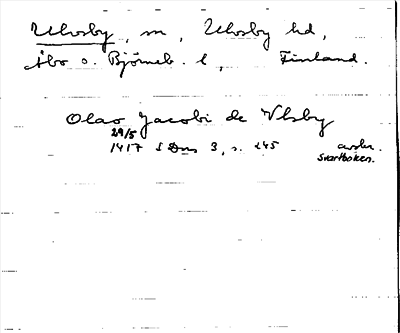 Ulvsby, m, Ulvsby hd,
Åbo o. Björneb. l, Finland.
Olao Jacobi de Vlsby
29/5
1417 SDns 3, s. 245 avskr.
Svartboken.